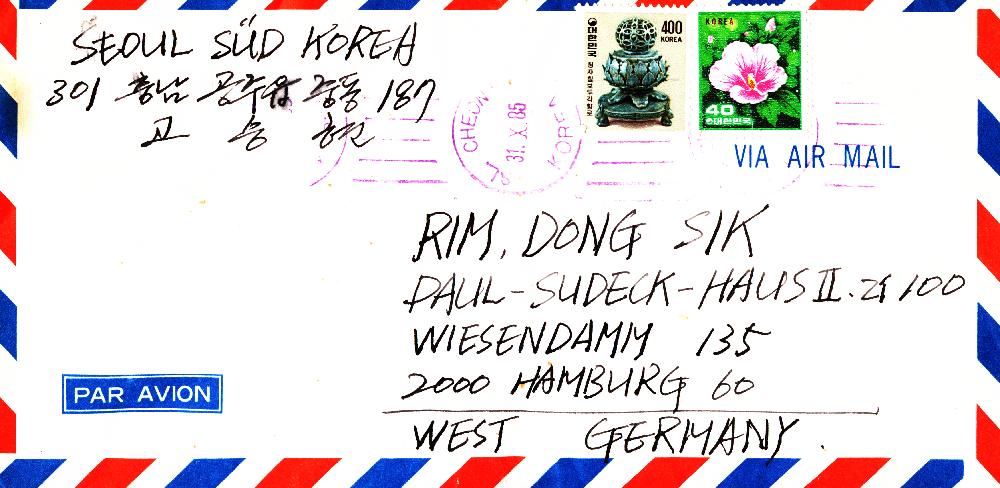 SEOUL SÜD KOREA
301 충남 공주읍 중동 187
고 승 현
대한민국
400
KOREA
KOREA
40
대한민국
CHEON
31.X.85
KORE
VIA AIR MAIL
RIM, DONG SIK
PAUL-SUDECK-HAUS II. Zi 100
WIESENDAMM 135
2000 HAMBURG 60
WEST GERMANY.
PAR AVION